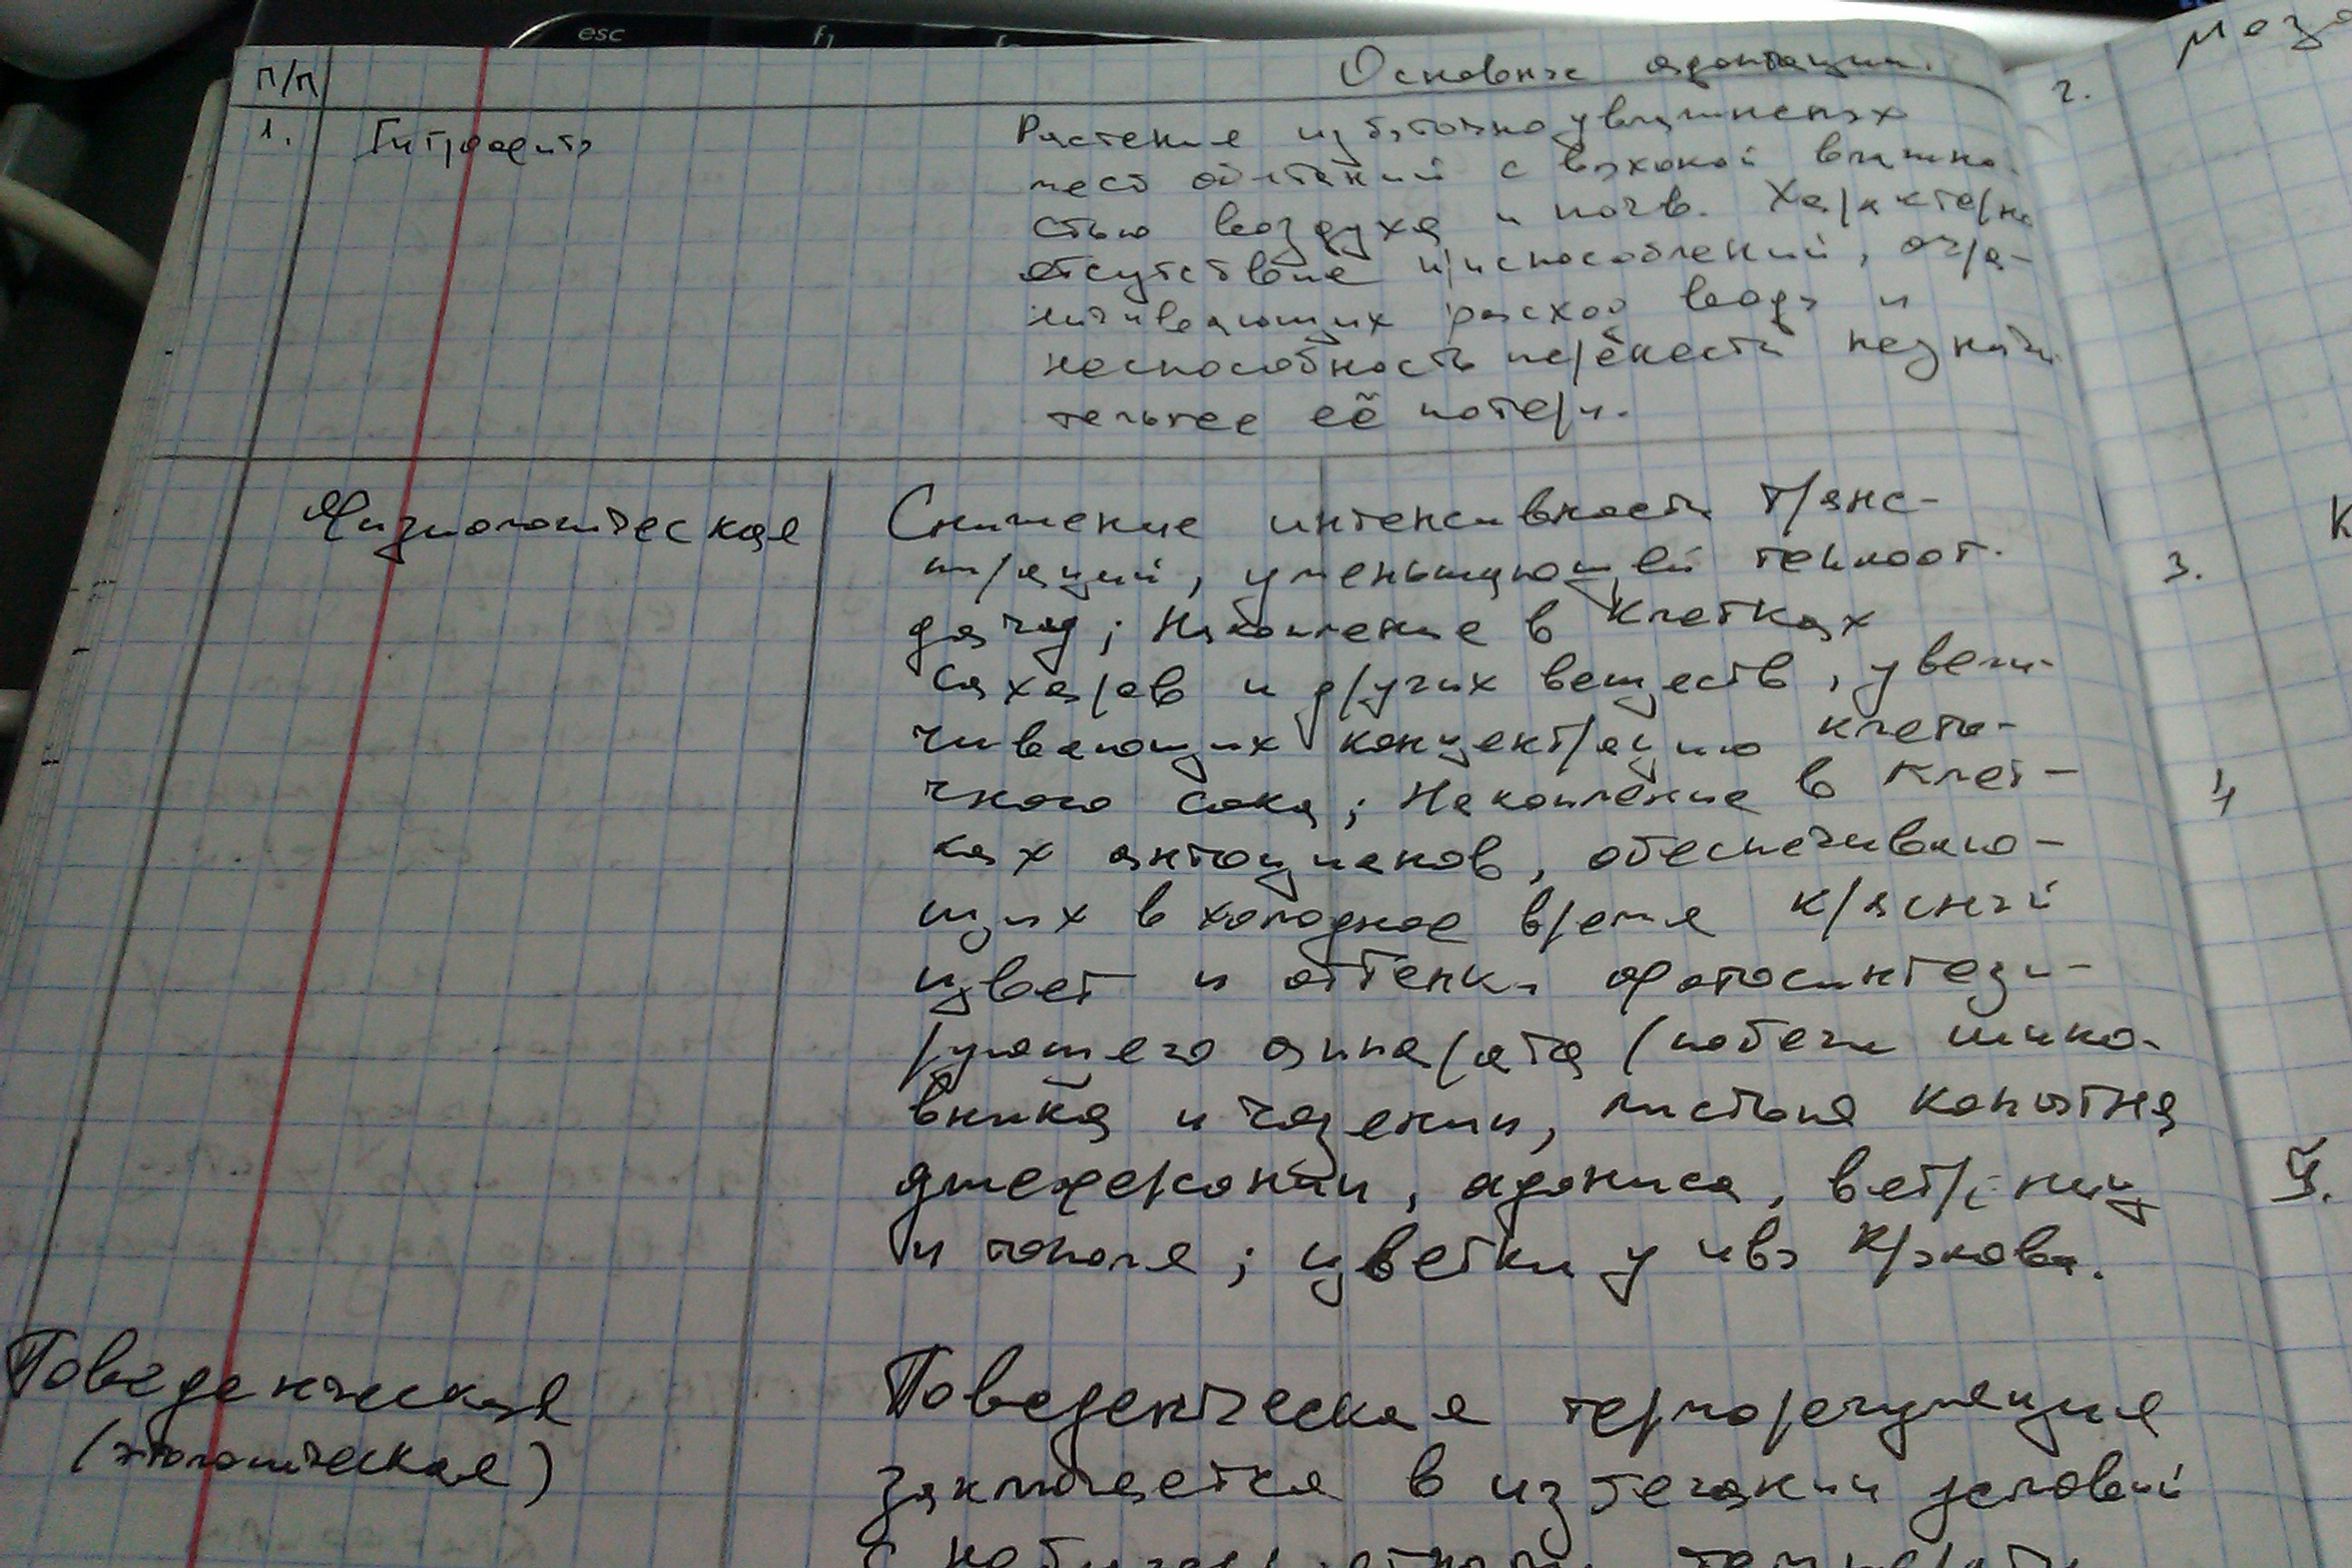 esc f1
п/п Основные адаптации.
1. Гигрофиты Растение избыточно увлажненных
мест обитаний с высокой влажно-
стью воздуха и почв. Характерно
отсутствие приспособлений, огра-
ничивающих расход воды и
неспособность перенести незначи
тельное её потери.
Физиологическая Снижение интенсивности транс-
пираций, уменьшующей теплоот-
дачу; Накопление в клетках
сахаров и других веществ, увели-
чивающих концентрацию клето-
чного сока; Накопление в клет-
ках антоцианов, обеспечиваю-
щих в холодное время красный
цвет и оттенки фотосинтези-
рующего аппарата (побеги шипо-
вника и чозении, листья копытня
адониса, ветрениц
и тополя; цветки у ивы Крылова.
Поведенческая Поведенческая терморегуляция
(этологическая) заключается в избегании условий
2.
3.
4
5.
К